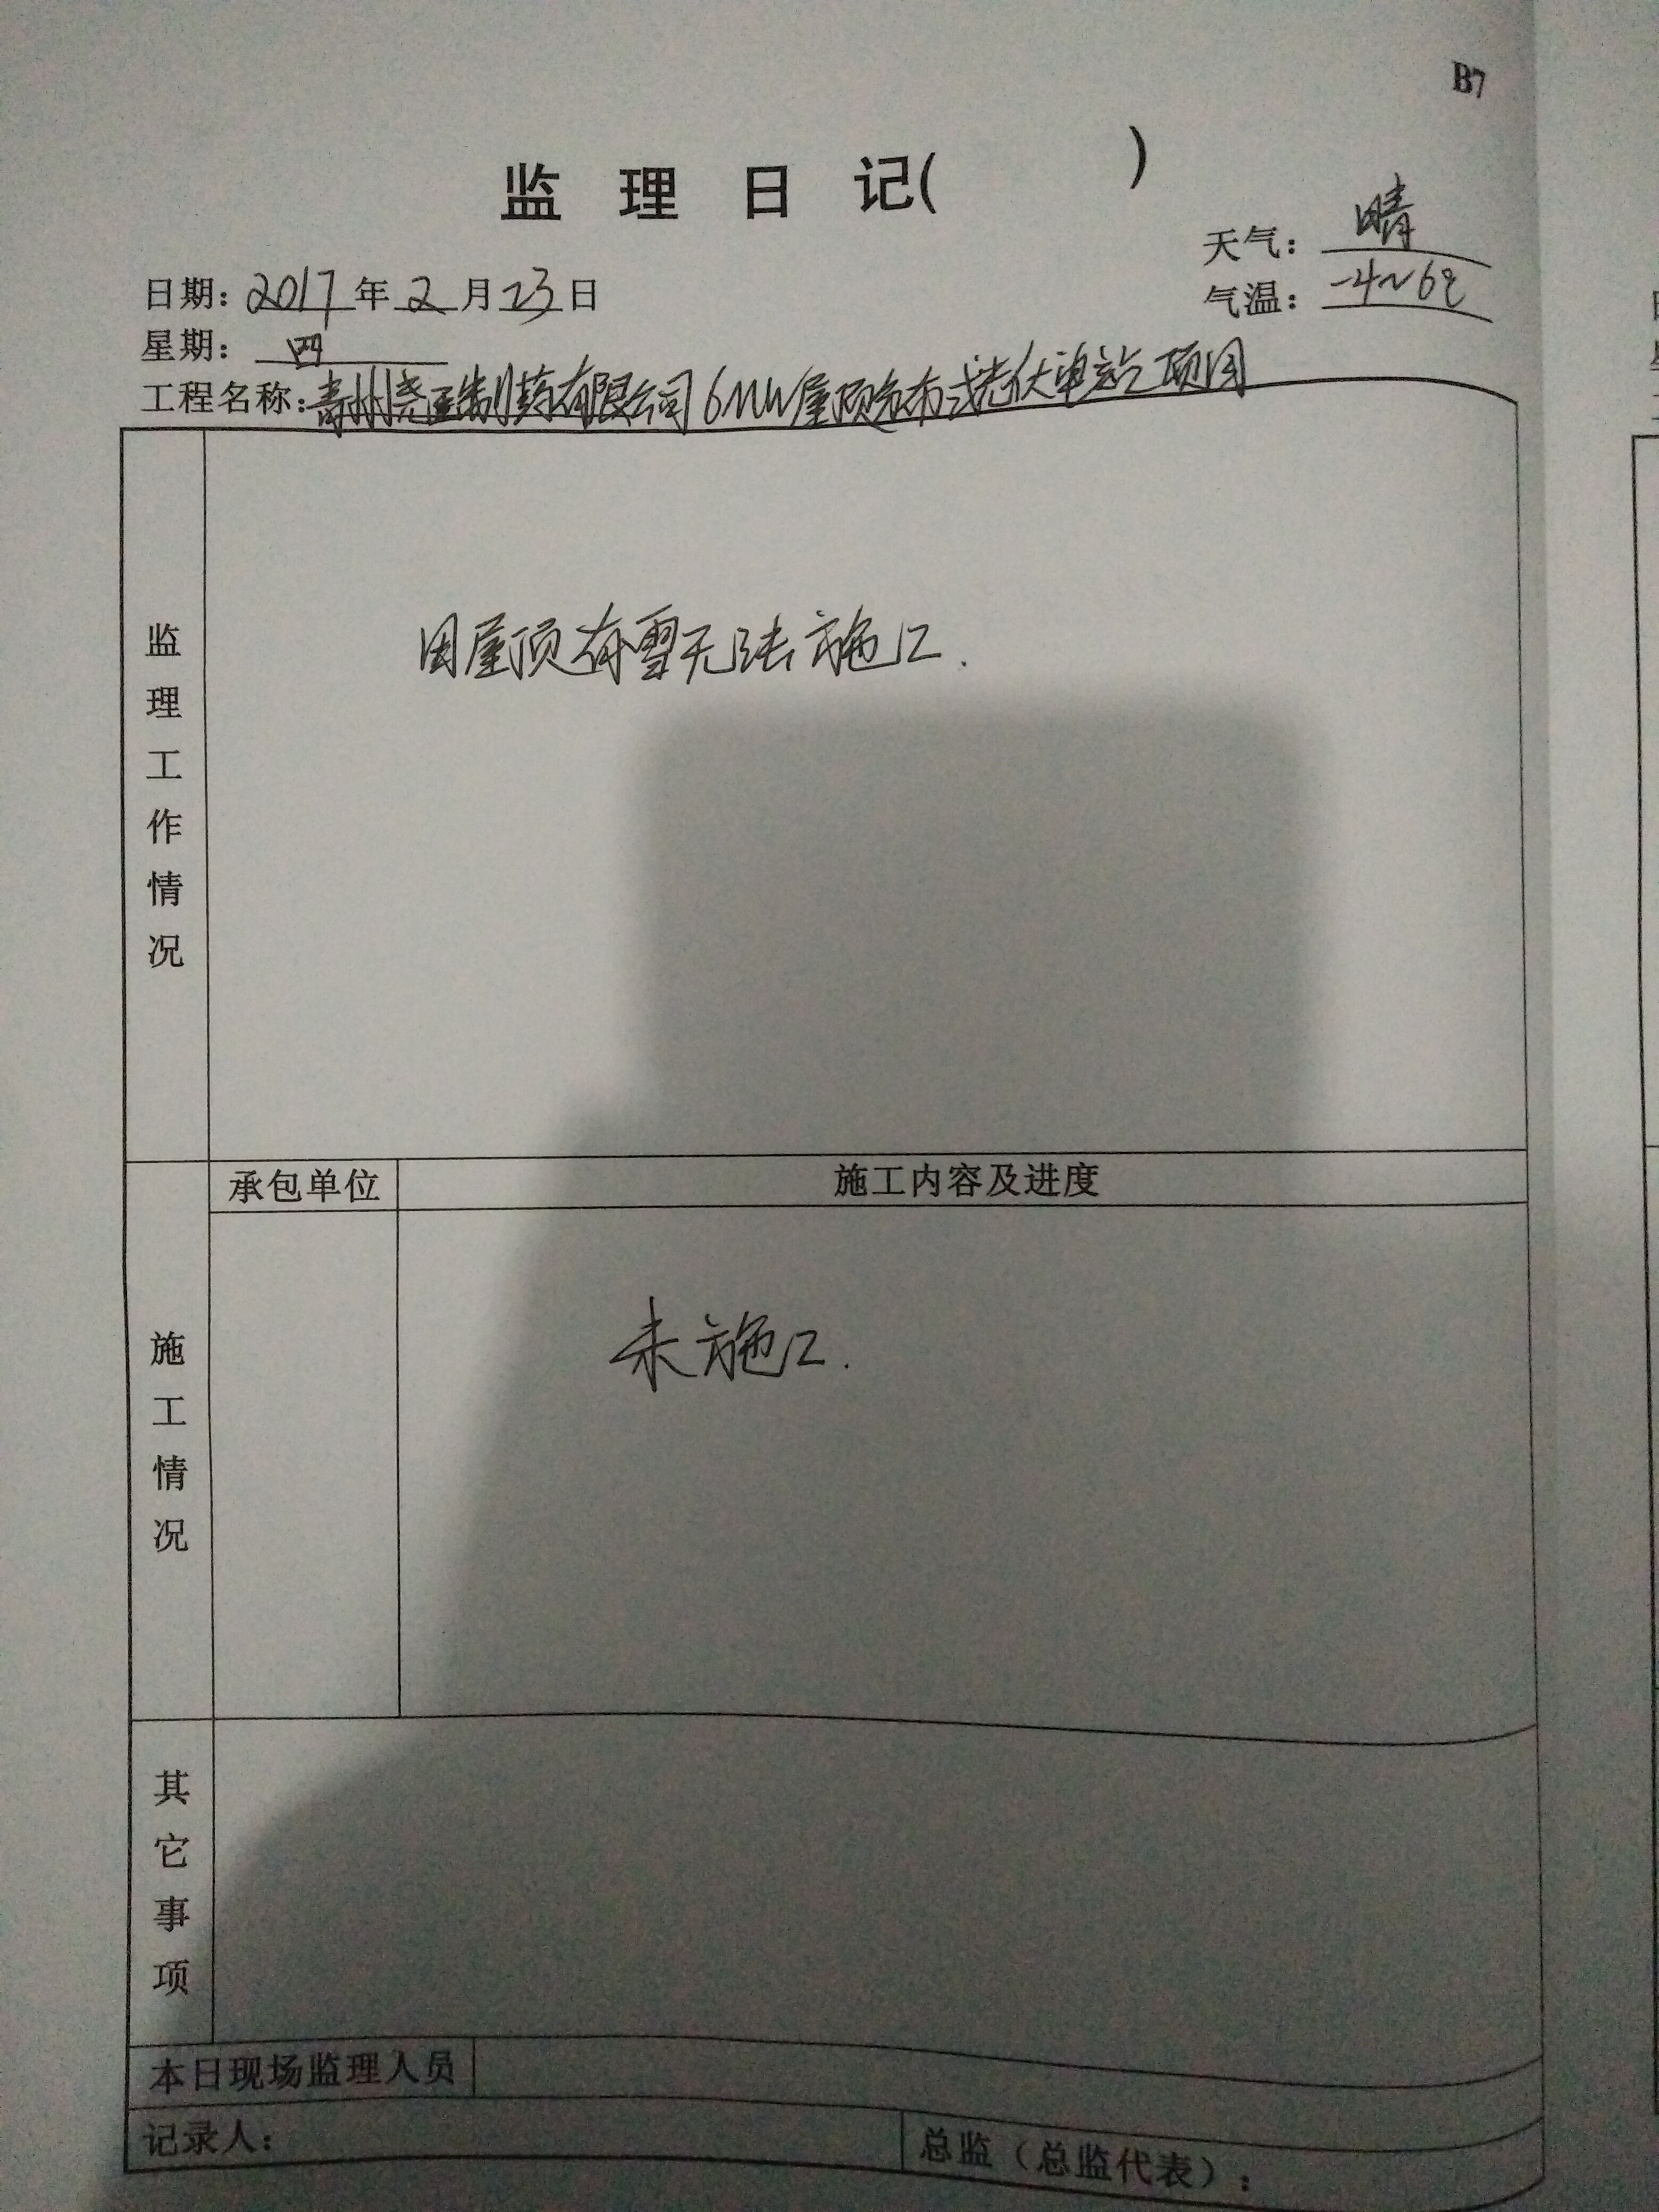 B7
监理日记( )
天气：晴
日期：2017年2月23日
气温：-4~6℃
星期：四
工程名称：青州尧王制药有限公司6MW屋顶分布式光伏电站项目
监理工作情况
因屋顶有雪无法施工.
承包单位 施工内容及进度
施工情况
未施工.
其它事项
本日现场监理人员
记录人： 总监（总监代表）：